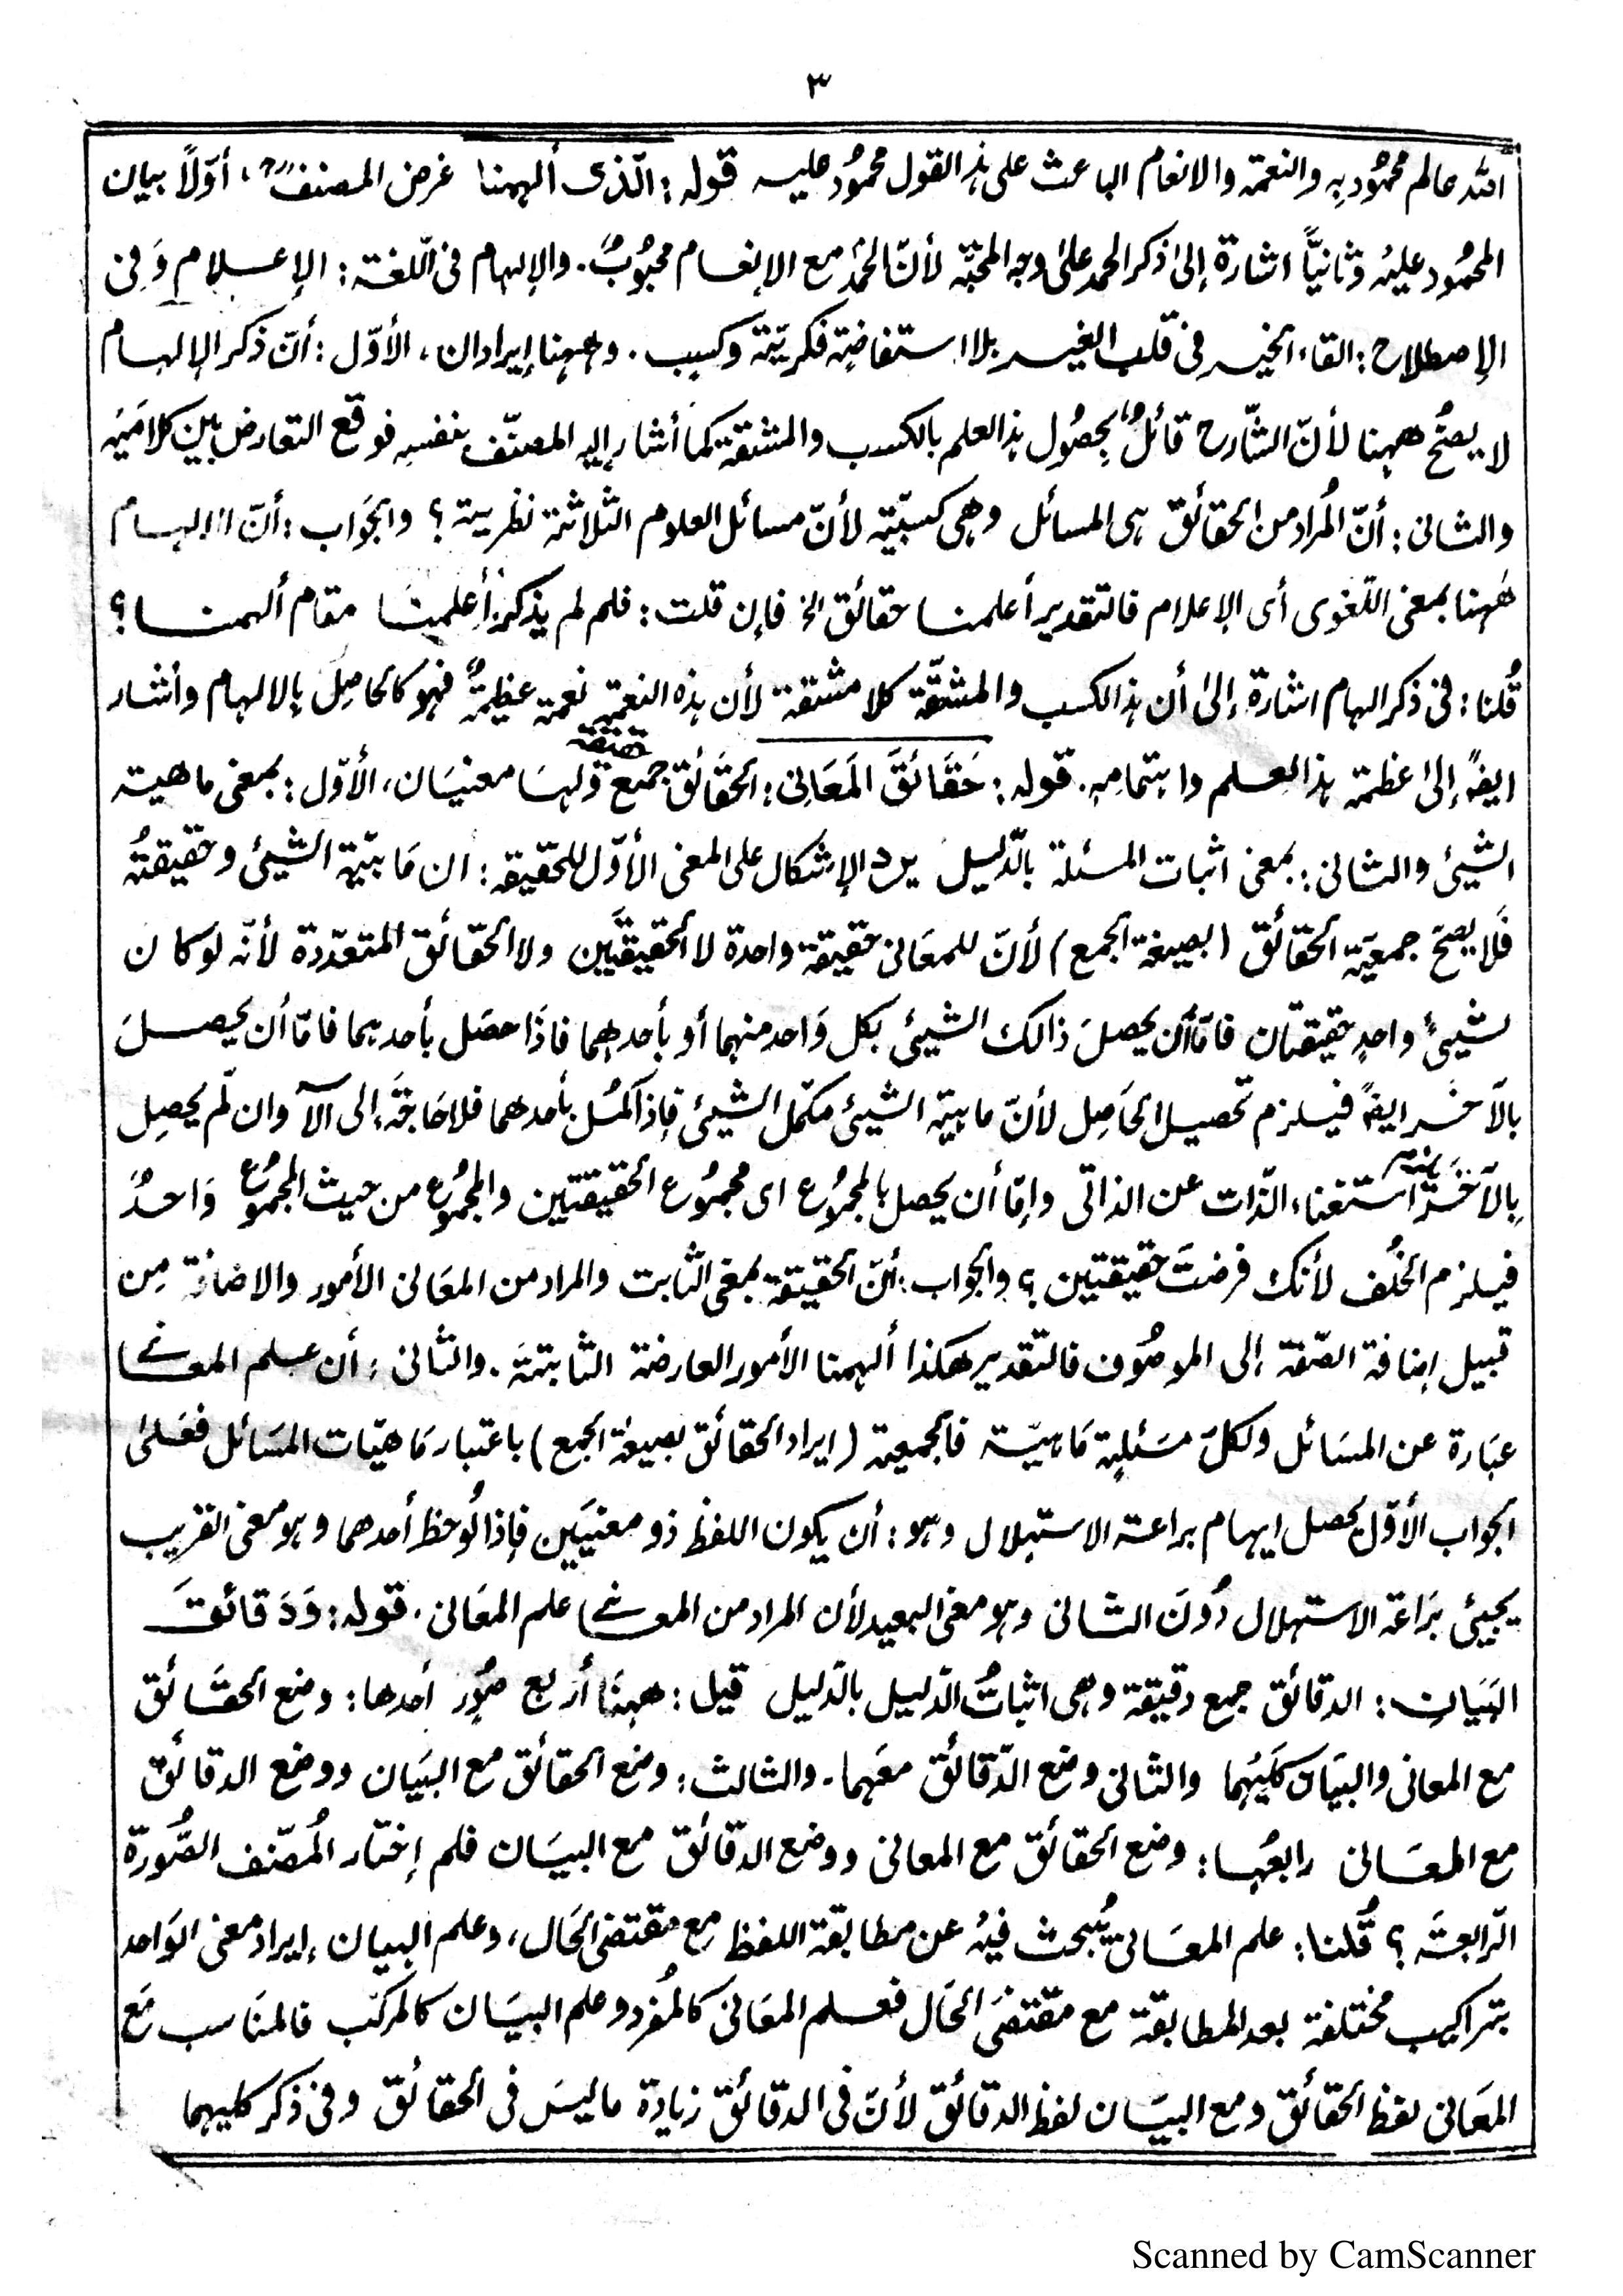 ٣
الله عالم محمُود بِه والنعمة والانعام الباعث على هذا القول محمُود عليه قوله: الّذى ألهمنا غرض المصنفؒ، أوّلاً بيان
المحمُود عليهُ وثانيّاً اشارة إلىٰ ذكر الحمد علىٰ وجه المحبّة لأنّ الحمدَ مع الإنعام محبُوبٌ. والإلهام فى اللّغة: الإعلام وَفى
الإصطلاح: القاء الخير فى قلب الغير بلا استفاضةٍ فكريّة وكسبٍ. وههنا إيرادان، الأوّل: أنّ ذكر الإلهام
لا يصحُّ ههنا لأنّ الشّارح قائلٌ بحصُول هذا العلم بالكسب والمشقّة كمَا أشار إليه المصنّف بنفسهٖ فوقع التعارض بين كلامَيْه
والثانى: أنّ المُراد من الحقائق هى المسائل وهى كسبيّة لأنّ مسائل العلوم الثّلاثة نظرية؟ والجَواب: أنّ الالهام
هٰهنا بمعنى اللّغوى أى الإعلام فالتقدير أعلمنا حقائق الخ فإن قلت: فلم لم يذكر أعلمنَا مقام ألهمنا؟
قُلنا: فى ذكر الهام اشارة إلىٰ أن هذا الكسب والمشقّة كلا مشقة لأن هذه النعمة نعمة عظيمةٌ فهو كالحاصِل بالالهام وأشار
ايضًا إلىٰ عظمة هذا العلم واهتمامِهٖ. قوله: حَقَائقَ المَعَانى: الحَقَائق جمع حقيقة وَلهَا معنيَان، الأوّل: بمعنى ماهية
الشيئ والثانى: بمعنى اثبات المسئلة بالدّليل يرد الإشكال على المعنى الأوّل للحقيقة: ان مَاهيّة الشيئ وحقيقتُه
فَلا يصحّ جمعيّة الحقائق (بصيغة الجمع) لأنّ للمعَانى حقيقة واحدة لا الحقيقتَين ولا الحقائق المتعدّدة لأنّه لوكان
لشيئٍ واحدٍ حقيقتان فامّا أن يحصلَ ذالك الشيئ بكل وَاحد منهما أو بأحدهما فاذَا حصَل بأحدهما فامّا أن يحصلَ
بالآخر ايضًا فيلزم تحصيل الحَاصِل لأنّ ماهيّة الشيئ مكمّل الشيئ فإذا كمُل بأحدهما فلاحَاجَة إلى الآ وان لّم يحصِل
بِالآخَر يلزم استغناء الذّات عن الذاتى وإمّا أن يحصل بالمجمُوع اى مجمُوع الحقيقتين والمجمُوع من حيث المجمُوع وَاحدٌ
فيلزم الخُلف لأنك فرضتَ حقيقتين؟ والجواب: أنّ الحقيقة بمعنى الثّابت والمراد من المعَانى الأمور والاضافة مِن
قبيل إضافة الصّفة إلى الموصُوف فالتّقدير هكذا ألهمنا الأمور العارضة الثابتةَ. والثّانى: أن علم المعانى
عبَارة عن المسَائل ولكلّ مسَئلةٍ مَاهيّة فالجمعية (ايراد الحقائق بصيغة الجمع) باعتبار مَاهيّات المسَائل فعَلىٰ
الجواب الأوّل يحصل ايهام براعة الاستهلال وهو: أن يكون اللفظ ذو معنيَين فإذا لُوحظ أحدهما وهو معنى القريب
يجيئ برَاعة الاستهلال دُونَ الثانى وهو معنى البعيد لأن المراد من المعانى علم المعَانى. قوله: وَدَقائقَ
البَيَانِ: الدقائق جمع دقيقة وهى اثباتُ الدّليل بالدّليل قيل: ههنَا أربع صُوَر أحدها: وضع الحقَائق
مع المعانى والبيَان كلَيْهما والثانى وضع الدّقائق معَهما. والثالث: وضع الحقائق مع البيَان ووضع الدقائق
مع المعَانى رابعُها: وضع الحقائق مع المعانى ووضع الدقائق مع البيَان فلم إختار المُصنّف الصُّورة
الرّابعة؟ قُلنا: علم المعَانى يُبحث فيْه عن مطابقة اللفظ مع مقتضى الحَال، وعلم البيان إيراد معنى الوَاحد
بتراكيب مختلفة بعد المطابقة مع مقتضَى الحَال فعلم المعَانى كالمُفرد وعلم البيَان كالمركّب فالمنَاسب مَع
المعَانى لفظ الحقائق ومع البيَان لفظ الدقائق لأنّ فى الدقائق زيادة ماليسَ فى الحقائق وفى ذكر كليهما
Scanned by CamScanner